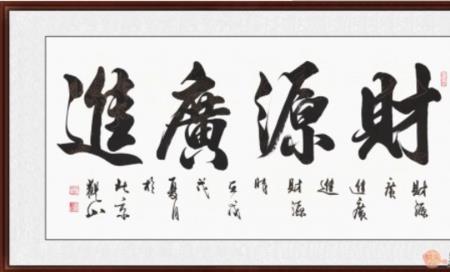 財源廣進
財源
廣
進廣
進
財源
時
夏月
於
北京